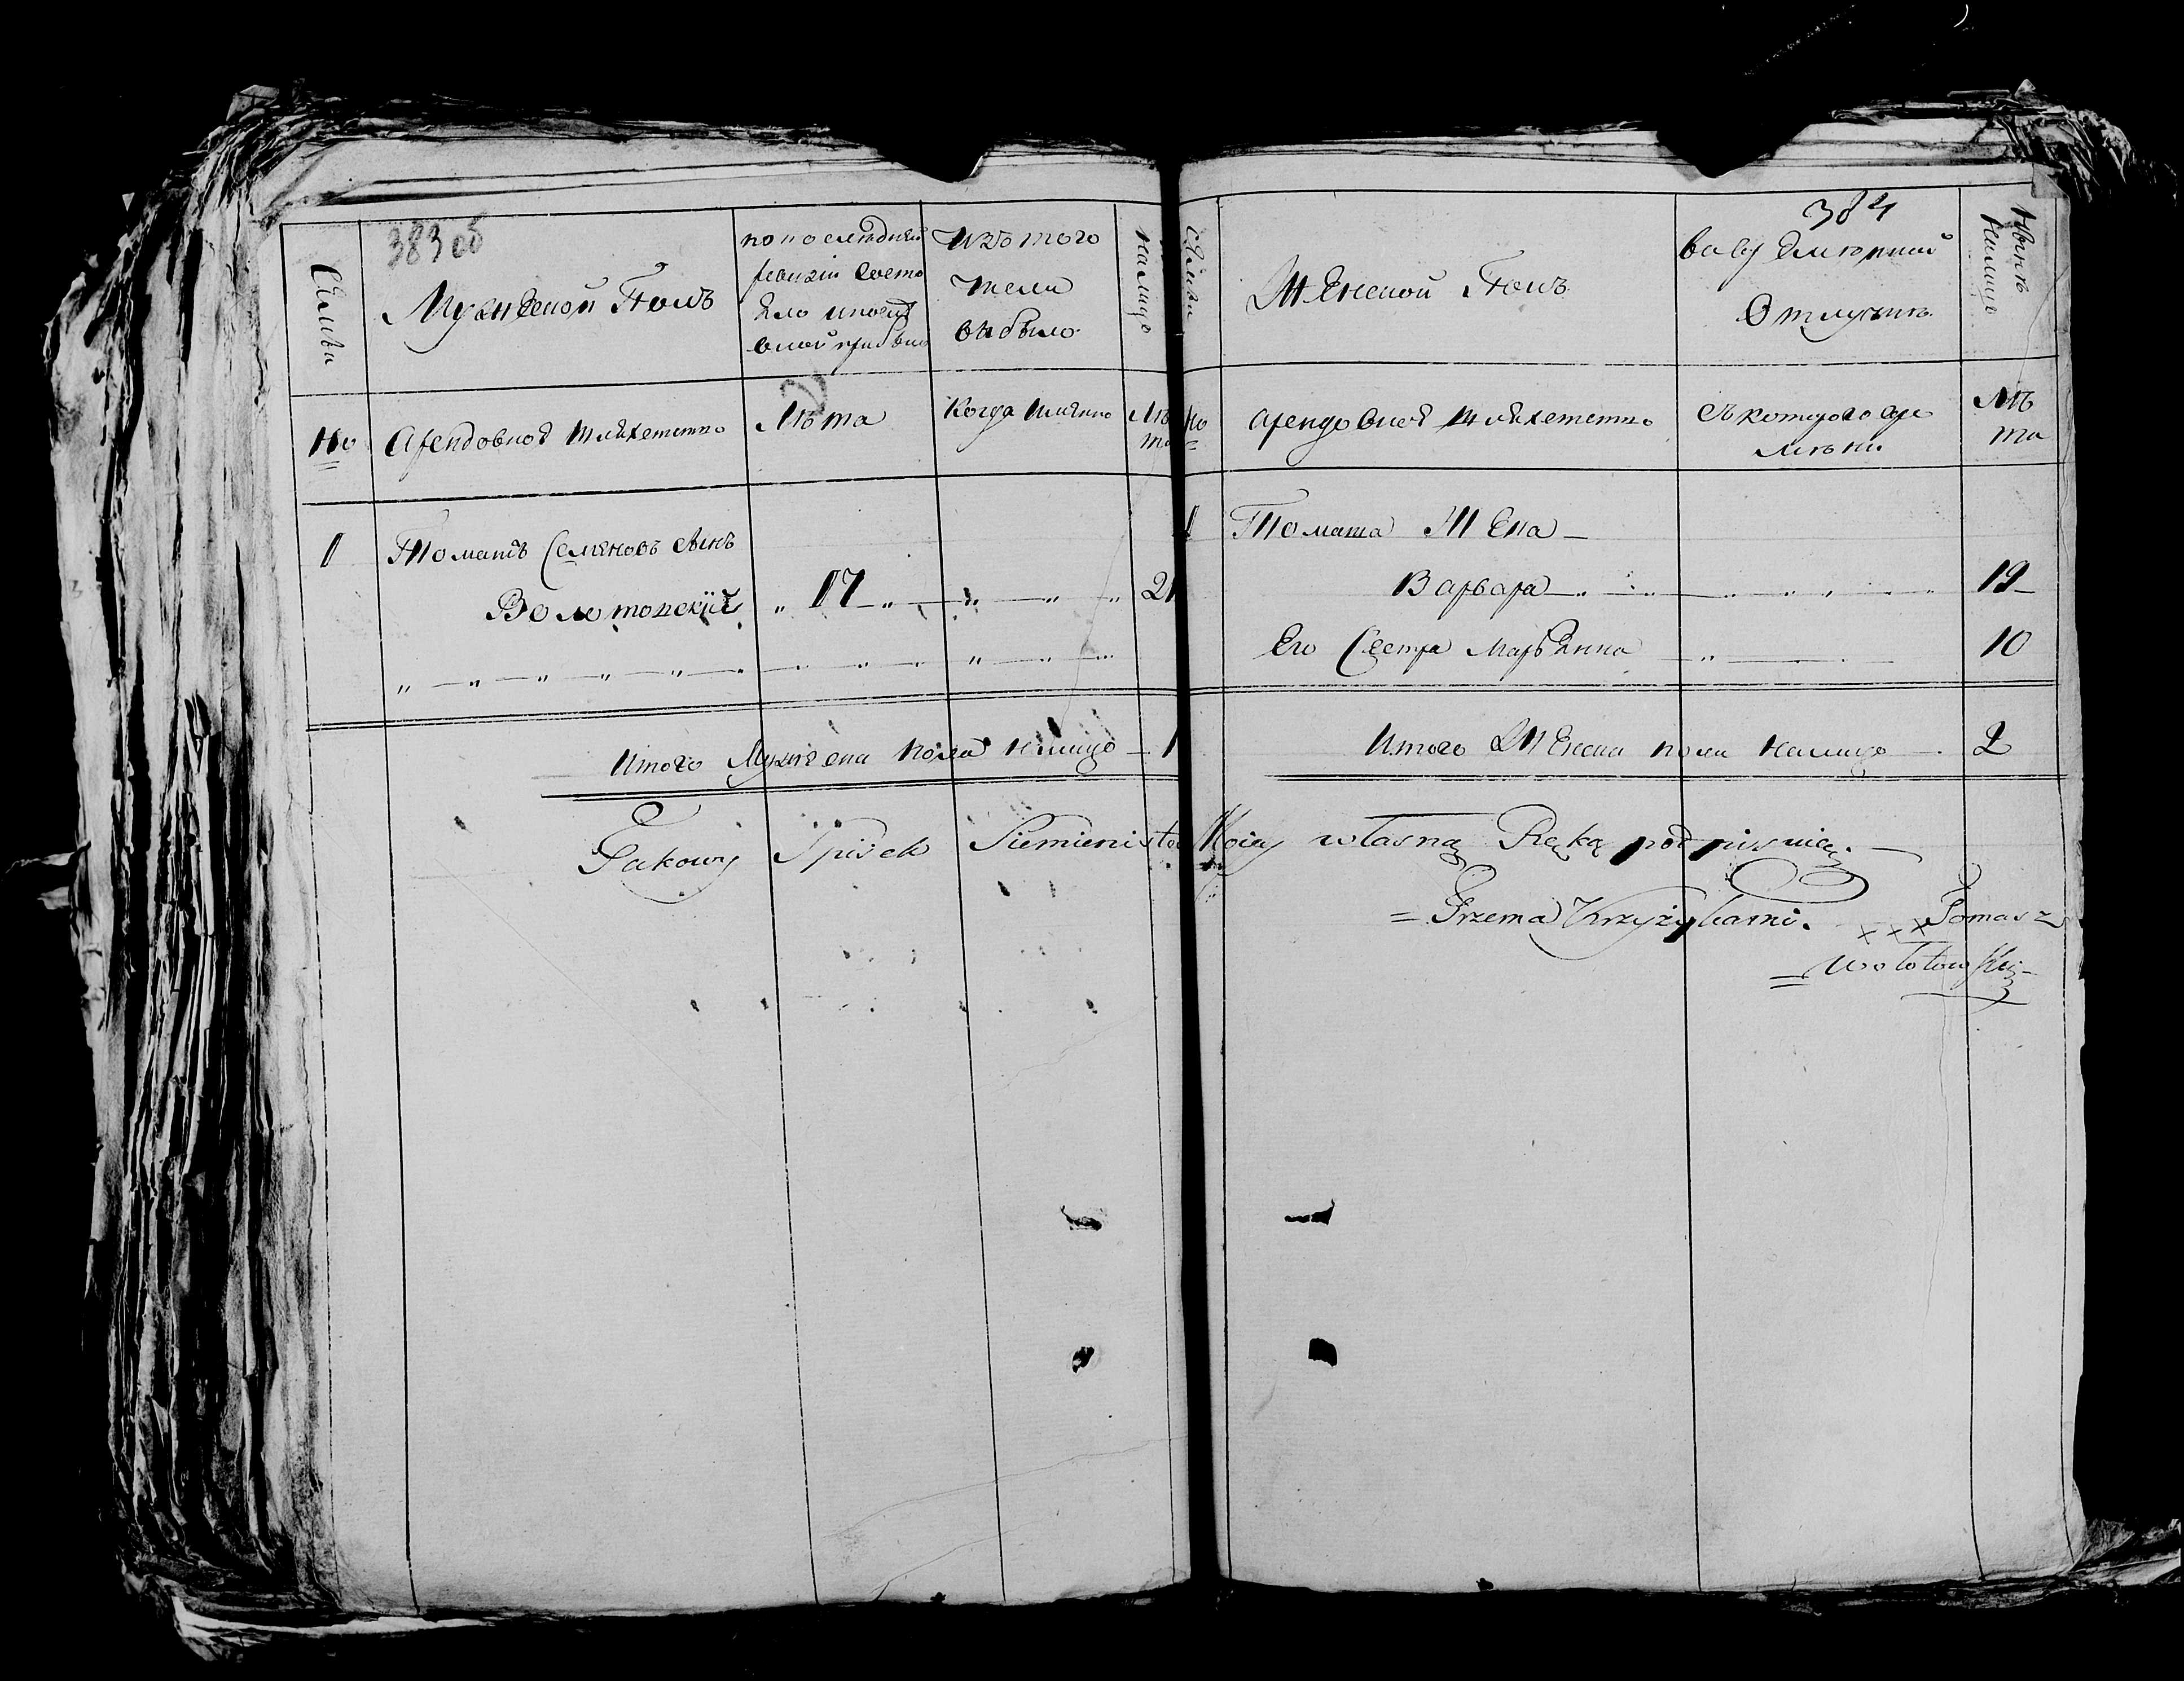 383 об
Семьи
Мужеской Полъ
по последней
ревизіи состо
яло и после
оной прибыло
Изъ того
числа
выбыло
налицо
No
Арендовное Шляхетство
Лѣта
Когда Имянно
Лѣ
та
1
Томашъ Семеновъ сынъ
Волотовскій
17
21
Итого Мужеска пола налицо 1
384
Семьи
Женской Полъ
во временной
Отлучкѣ
Нынѣ
налицо
No
Арендовное Шляхетство
съ котораго вре
мѣни
Лѣ
та
1
Томаша Жена
Варвара 19
Его Сестра Марьянна 10
Итого Женска пола налицо 2
Takowy Spisek własną Ręką podpisuię.
= Trzema Krzyżykami. xxx Tomasz
= Wołotowski